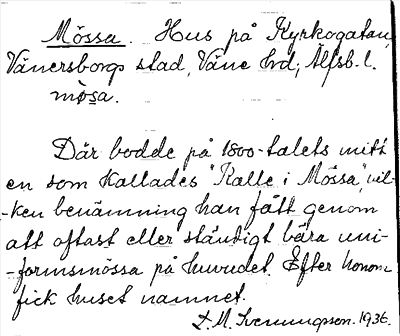 Mössa. Hus på Kyrkogatan,
Vänersborgs stad, Väne hd; Älfsb. l.
mösa.
Där bodde på 1800-talets mitt
en som kallades "Kalle i Mössa", vil-
-ken benämning han fått genom
att oftast eller ständigt bära uni-
-formsmössa på huvudet. Efter honom
fick huset namnet.
D. M. Svenungsson. 1936.